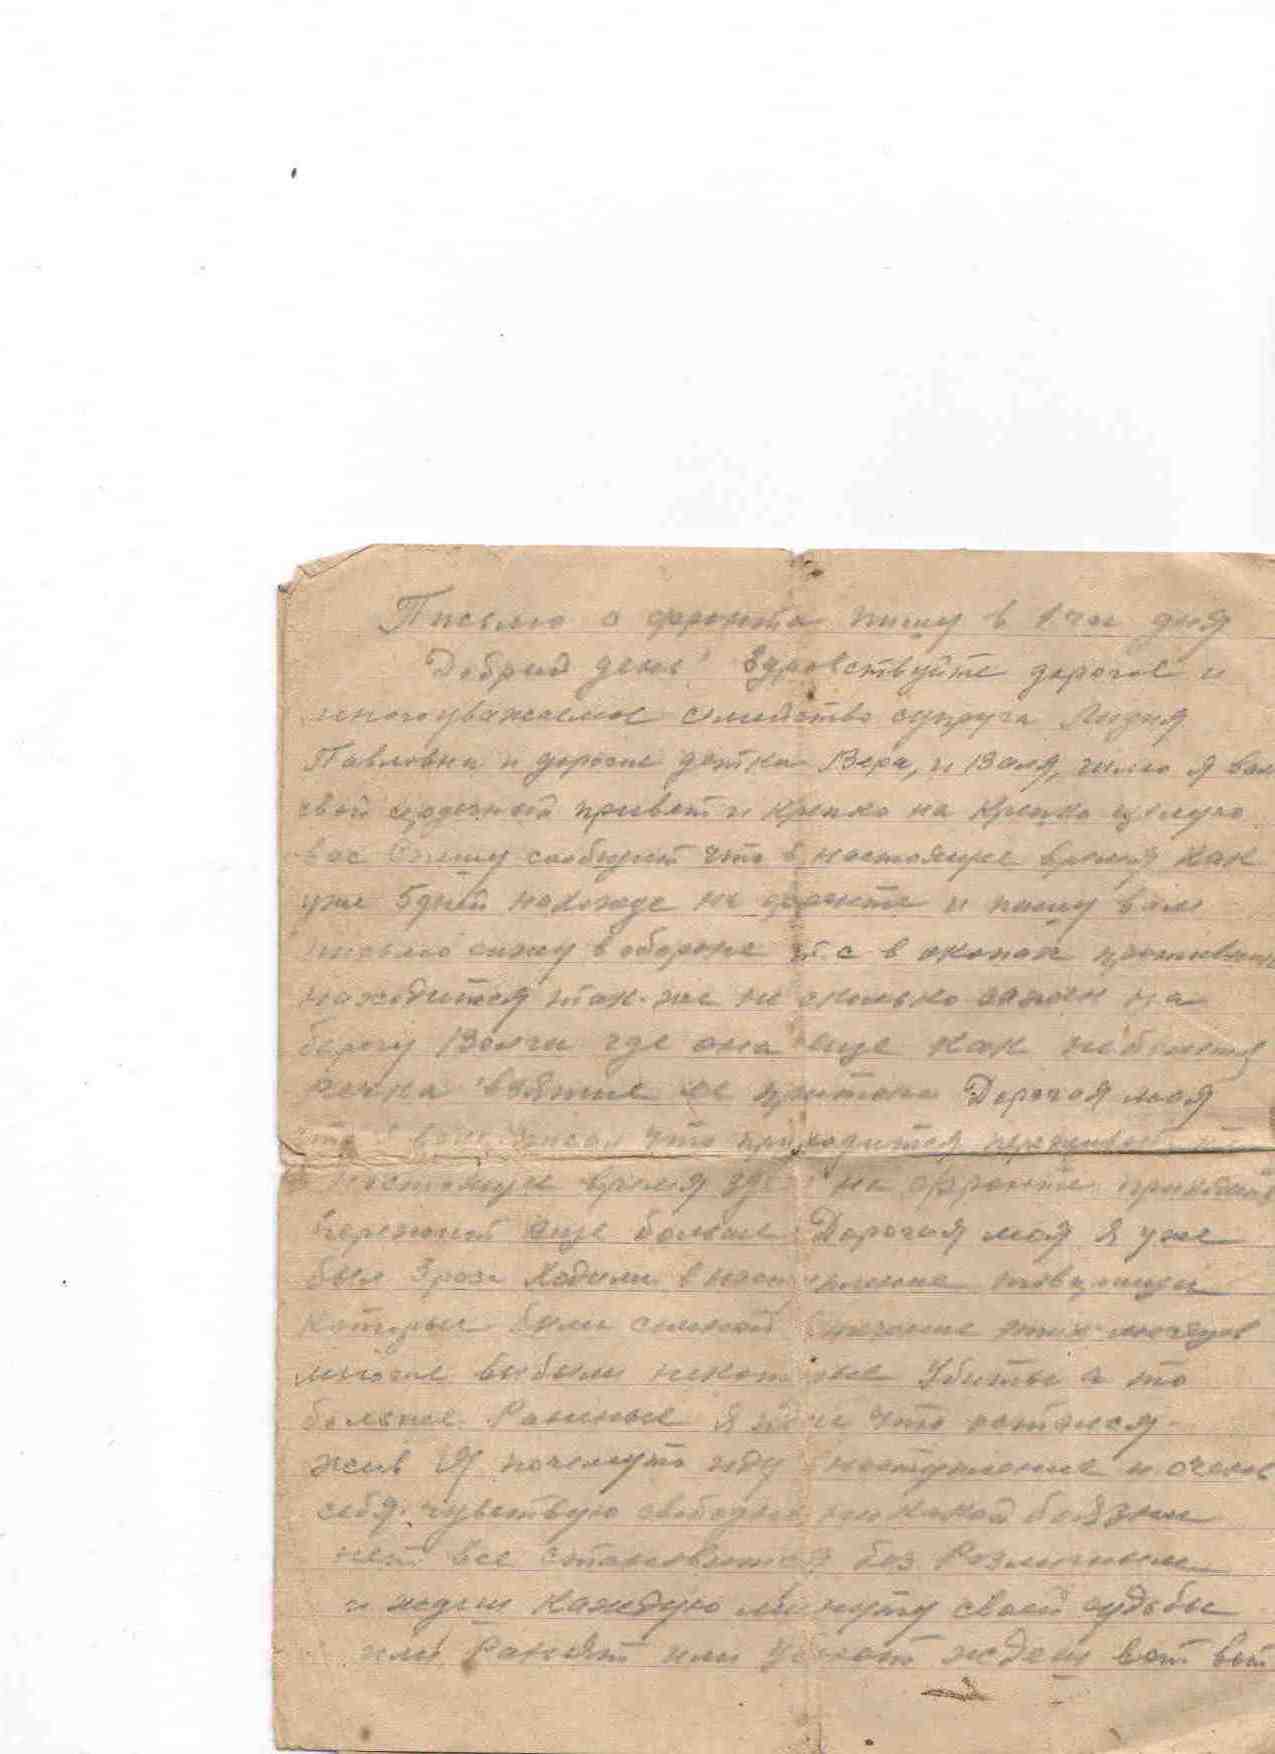 Письмо с фронта пишу в 1 час дня
Добрый день! Здравствуйте дорогое и
многоуважаемое семейство супруга Лидия
Павловна и дорогие детки Вера, и Валя, шлю я вам
свой сердечный привет и крепко на крепко целую
вас Спешу сообщит что в настоящее время как
уже 5 дней нахожусь на фронте и пишу вам
письмо сижу в обороне т.е в окопах противник
находится так-же не сколько на
берегу Волги где она еще как небольшая
речка Дорогая моя
что я вам писал что приходится переживать
настоящее время на фронте
еще больше Дорогая моя я уже
был 3 раза ходили в наступление товарищи
которые были со мной этих
многие выбыли некоторые убиты а то
больше Раненые я что остался
жив Я почемуто иду наступление и очень
себя чувствую свободно никакой боязни
нет все становится без Различным
и ждеш каждую минуту своей судьбы
или Ранят или убьют ждеш вот вот